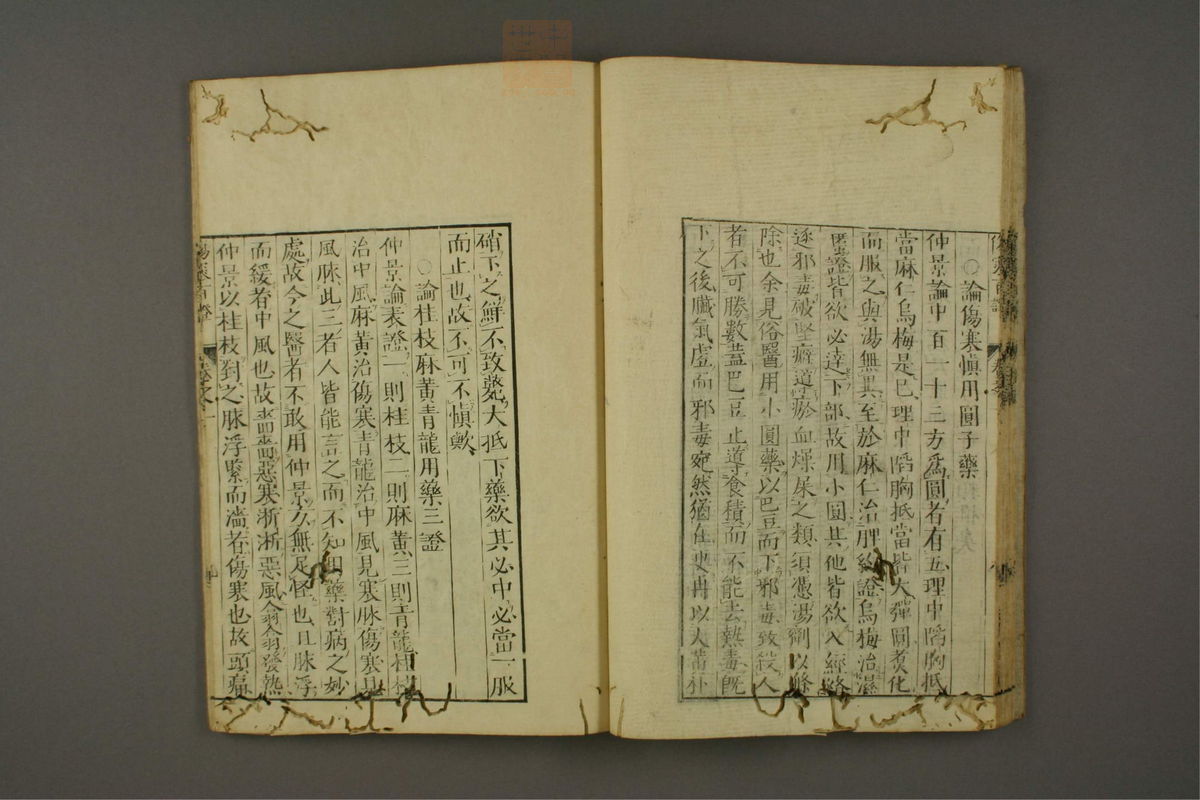 ○論傷寒慎用圓子藥
仲景論中百一十三方爲圓者有五理中陷胸抵
當麻仁烏梅是已理中陷胸抵當皆大彈圓煑化
而服之與湯無異至於麻仁治脾約證烏梅治濕
䘌證皆欲必達下部故用小圓其他皆欲入經絡
逐邪毒破堅癖導瘀血燥屎之類須憑湯劑以滌
除也余見俗醫用小圓藥以巴豆而下邪毒致殺人
者不可勝數葢巴豆止導食積而不能去熱毒既
下之後臟氣虛而邪毒宛然猶在更再以大黃朴
硝下之鮮不致斃大抵下藥欲其必中必當一服
而止也故不可不慎歟
○論桂枝麻黃青龍用藥三證
仲景論表證一則桂枝二則麻黃三則青龍桂枝
治中風麻黃治傷寒青龍治中風見寒脉傷寒見
風脉此三者人皆能言之而不知用藥對病之妙
處故今之醫者不敢用仲景方無足怪也且脉浮
而緩者中風也故嗇嗇惡寒淅淅惡風翕翕發熱
仲景以桂枝對之脉浮緊而濇者傷寒也故頭痛